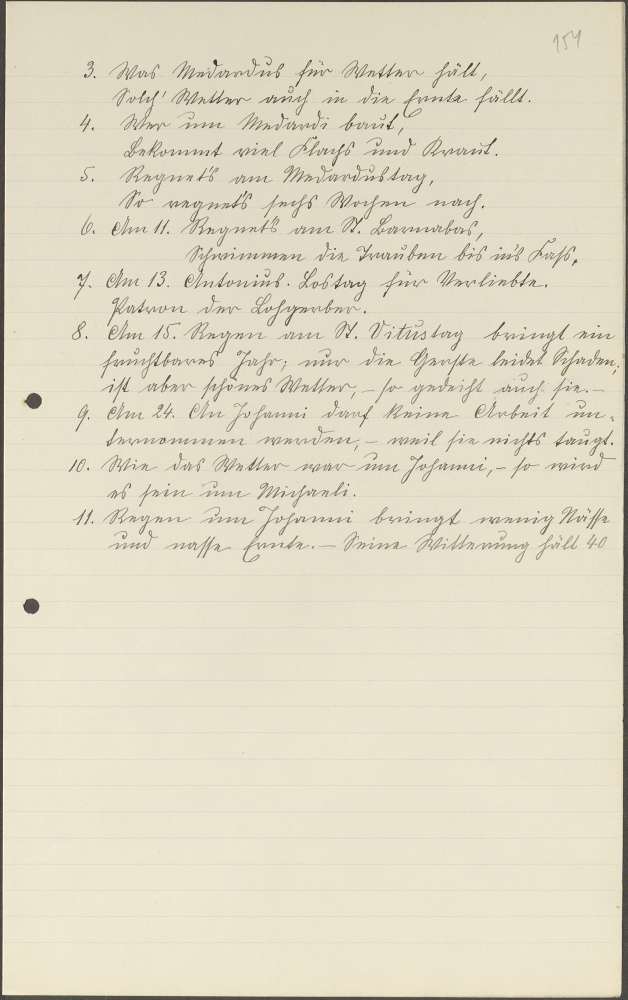 154
3. Was Medardus für Wetter hält,
Solch' Wetter auch in die Ernte fällt.
4. Wer um Medardi baut,
Bekommt viel Flachs und Kraut.
5. Regnet's am Medardustag,
So regnet's sechs Wochen nach.
6. Am 11. Regnet's am St. Barnabas,
Schwimmen die Trauben bis in's Fass.
7. Am 13. Antonius. Lostag für Verliebte.
Patron der Lohgerber.
8. Am 15. Regen am St. Vitustag bringt ein
fruchtbares Jahr; nur die Gerste leidet Schaden,
ist aber schönes Wetter, – so gedeiht auch sie. –
9. Am 24. An Johanni darf keine Arbeit un-
ternommen werden, – weil sie nichts taugt.
10. Wie das Wetter war um Johanni, – so wird
es sein um Michaeli.
11. Regen um Johanni bringt wenig Nüsse
und nasse Ernte. – Seine Witterung hält 40